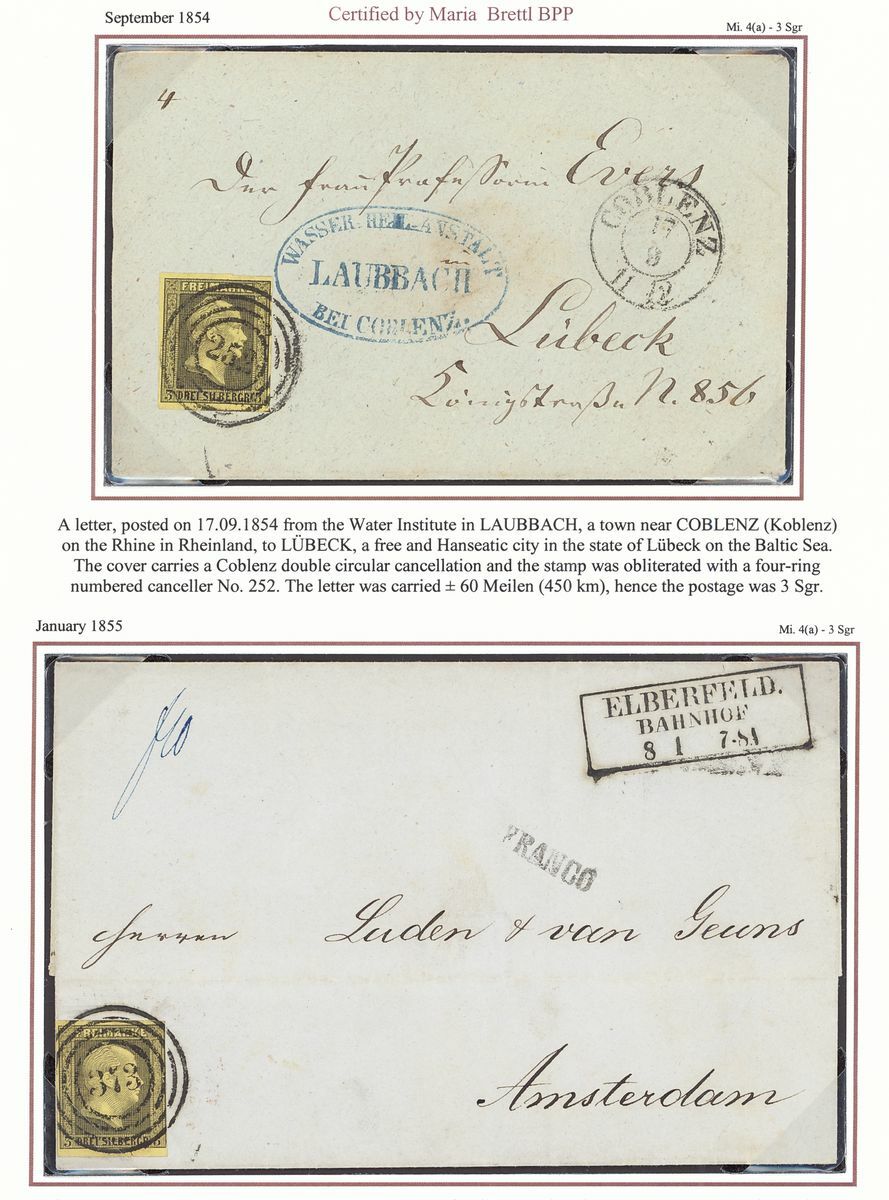 September 1854
Certified by Maria Brettl BPP
Mi. 4(a) - 3 Sgr
4
Der Frau Professorin Evers
COBLENZ
17
9
11 12
WASSER-HEIL-ANSTALT
in
LAUBBACH
BEI COBLENZ.
Lübeck
Königstraße N. 856
FREIMARKE
252
3 DREI SILBERGR. 3
A letter, posted on 17.09.1854 from the Water Institute in LAUBBACH, a town near COBLENZ (Koblenz)
on the Rhine in Rheinland, to LÜBECK, a free and Hanseatic city in the state of Lübeck on the Baltic Sea.
The cover carries a Coblenz double circular cancellation and the stamp was obliterated with a four-ring
numbered canceller No. 252. The letter was carried ± 60 Meilen (450 km), hence the postage was 3 Sgr.
January 1855
Mi. 4(a) - 3 Sgr
ELBERFELD.
BAHNHOF
8 1 7-8
FRANCO
Herren Luden & van Geuns
Amsterdam
FREIMARKE
373
3 DREI SILBERGR. 3